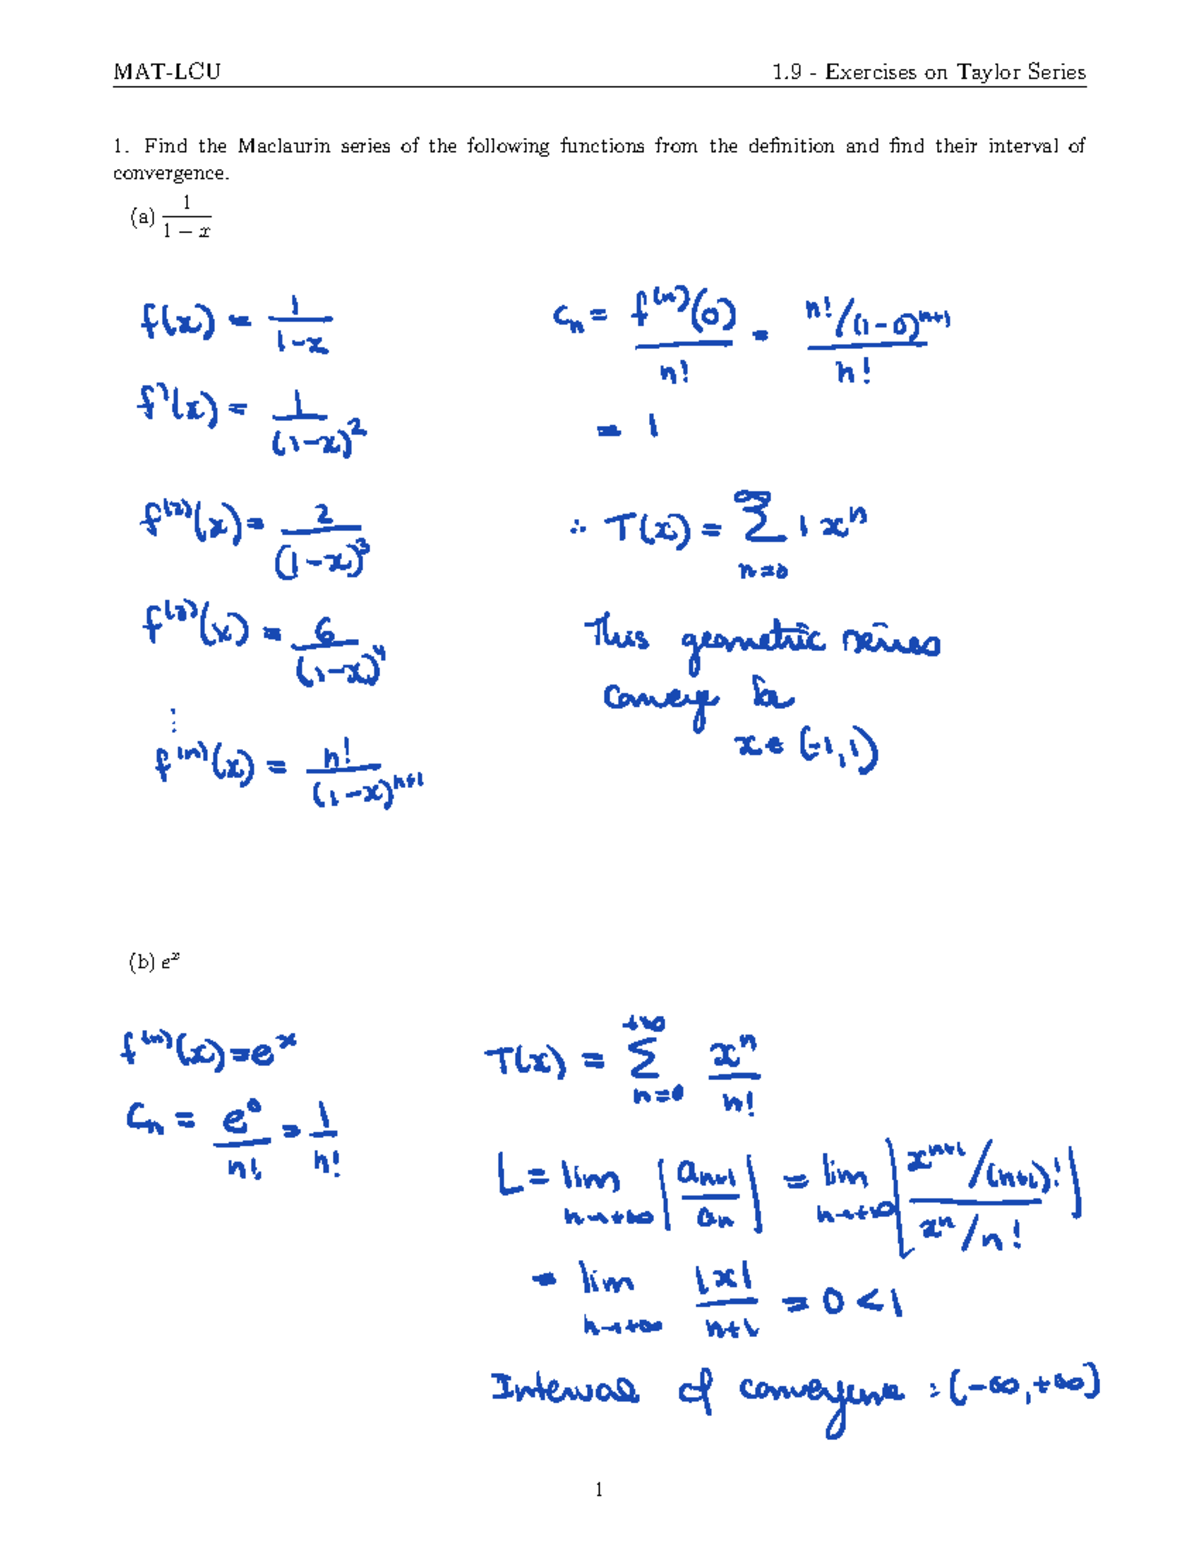 MAT-LCU 1.9 - Exercises on Taylor Series
1. Find the Maclaurin series of the following functions from the definition and find their interval of
convergence.
(a) 1/(1 − x)
f(x) = 1/(1-x)
f'(x) = 1/(1-x)^2
f^(2)(x) = 2/(1-x)^3
f^(3)(x) = 6/(1-x)^4
⋮
f^(n)(x) = n!/(1-x)^(n+1)
C_n = f^(n)(0)/n! = (n!/(1-0)^(n+1))/n!
= 1
∴ T(x) = ∑_{n=0}^{∞} 1 x^n
This geometric series
converge for
x ∈ (-1,1)
(b) e^x
f^(n)(x) = e^x
C_n = e^0/n! = 1/n!
T(x) = ∑_{n=0}^{+∞} x^n/n!
L = lim_{n→+∞} |a_{n+1}/a_n| = lim_{n→+∞} |(x^{n+1}/(n+1)!)/(x^n/n!)|
= lim_{n→+∞} |x|/(n+1) = 0 < 1
Interval of convergence : (-∞,+∞)
1